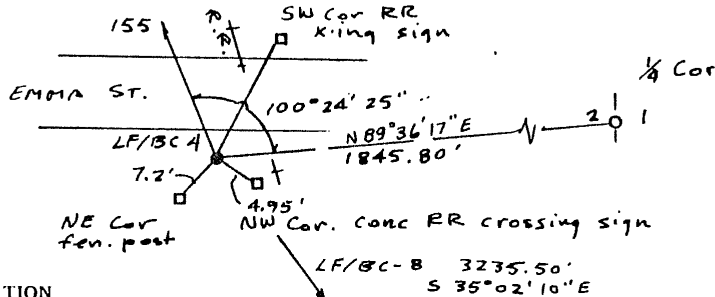 SW Cor RR
x-ing sign
155
R.R.
1/4 Cor
EMMA ST.
100°24'25"
LF/BC 4
N 89°36'17" E
1845.80'
2 1
7.2'
4.95'
NE Cor
fen. post
NW Cor. Conc RR crossing sign
LF/BC-8 3235.50'
S 35°02'10" E
TION